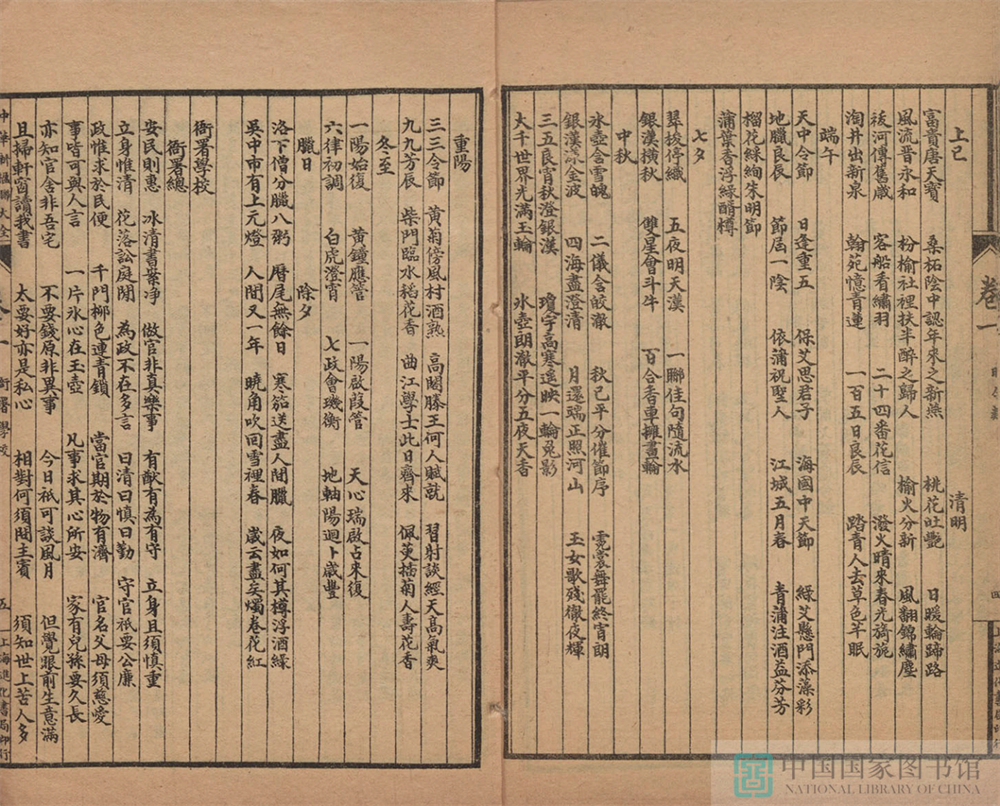 上巳　清明
富貴唐天寶　桑柘陰中認年來之新燕　桃花吐艷　日暖輪蹄路
風流晋永和　粉榆社裡扶半醉之歸人　榆火分新　風翻錦繡塵
祓河傳舊歲　客船看繡羽　二十四番花信　潑火晴來春光旖旎
淘井出新泉　翰苑憶青蓮　一百五日良辰　踏青人去草色芊眠
端午
天中令節　日逢重五　保艾思君子　海國中天節　綠艾懸門添藻彩
地臘良辰　節届一陰　依蒲祝聖人　江城五月春　青蒲注酒益芬芳
榴花綵絢朱明節
蒲葉香浮綠醑樽
七夕
翠梭停織　五夜明天漢　一聯佳句隨流水
銀漢橫秋　雙星會斗牛　百合香車擁畫輪
中秋
氷壺含雪魄　二儀含皎澈　秋已平分催節序　霓裳舞罷終宵朗
銀漢漾金波　四海盡澄清　月還端正照河山　玉女歌殘徹夜輝
三五良宵秋澄銀漢　瓊宇高寒遥映一輪兎影
大千世界光滿玉輪　氷壺朗澈平分五夜天香
卷一
四
重陽
三三令節　黃菊傍風村酒熟　高閣滕王何人賦就　習射談經天高氣爽
九九芳辰　柴門臨水稻花香　曲江學士此日齊來　佩萸插菊人壽花香
冬至
一陽始復　黃鐘應管　一陽啟葭管　天心瑞啟占來復
六律初調　白虎澄霄　七政會璣衡　地軸陽迴卜歲豐
臘日　除夕
洛下僧分臘八粥　曆尾無餘日　寒笳送盡人間臘　夜如何其樽浮酒綠
吳中市有上元燈　人間又一年　曉角吹回雪裡春　歲云盡矣燭卷花紅
衙署學校
衙署總
安民則惠　冰清書案净　做官非真樂事　有猷有為有守　立身且須慎重
立身惟清　花落訟庭閒　為政不在多言　曰清曰慎曰勤　守官祇要公廉
政惟求於民便　千門柳色連青鎖　當官期於物有濟　官名父母須慈愛
事皆可與人言　一片氷心在玉壺　凡事求其心所安　家有兒孫要久長
亦知官舍非吾宅　不要錢原非異事　今日祇可談風月　但覺眼前生意滿
且掃軒窗讀我書　太要好亦是私心　相對何須問主賓　須知世上苦人多
中華新楹聯大全　衙署學校　五　上海進化書局印行
中国国家图书馆
NATIONAL LIBRARY OF CHINA